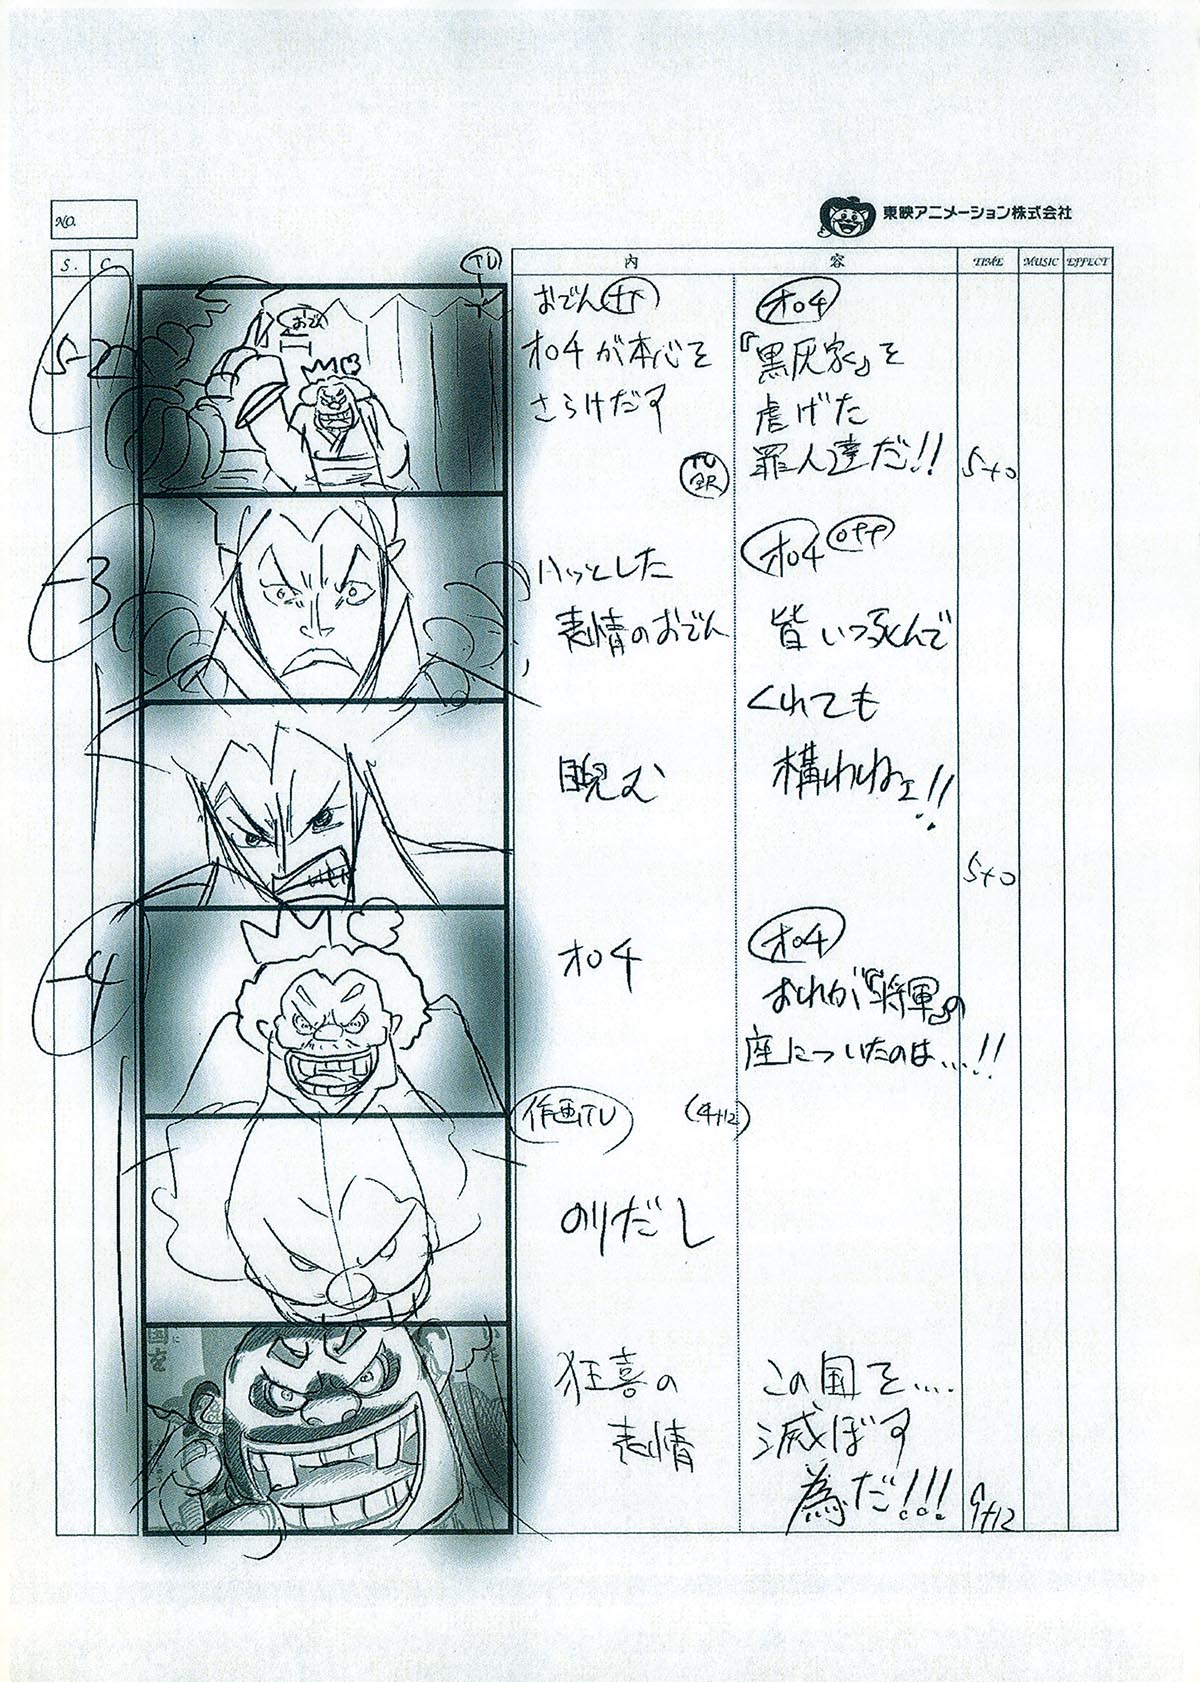 NO.
東映アニメーション株式会社
S. C.
内 容
TIME MUSIC EFFECT
5-2
TU
おでん
おでん
オロチが本心を
さらけだす
TU
オロチ
『黒炭家』を
虐げた
罪人達だ!!
5+0
-3
ハッとした
表情のおでん
オロチ OFF
皆いつ死んで
くれても
構わねェ!!
睨む
5+0
-4
オロチ
オロチ
おれが『将軍』の
座についたのは…!!
作画TU
(4+12)
のりだし
国を
に
いた
狂喜の
表情
この国を…
滅ぼす
為だ!!!
9+12